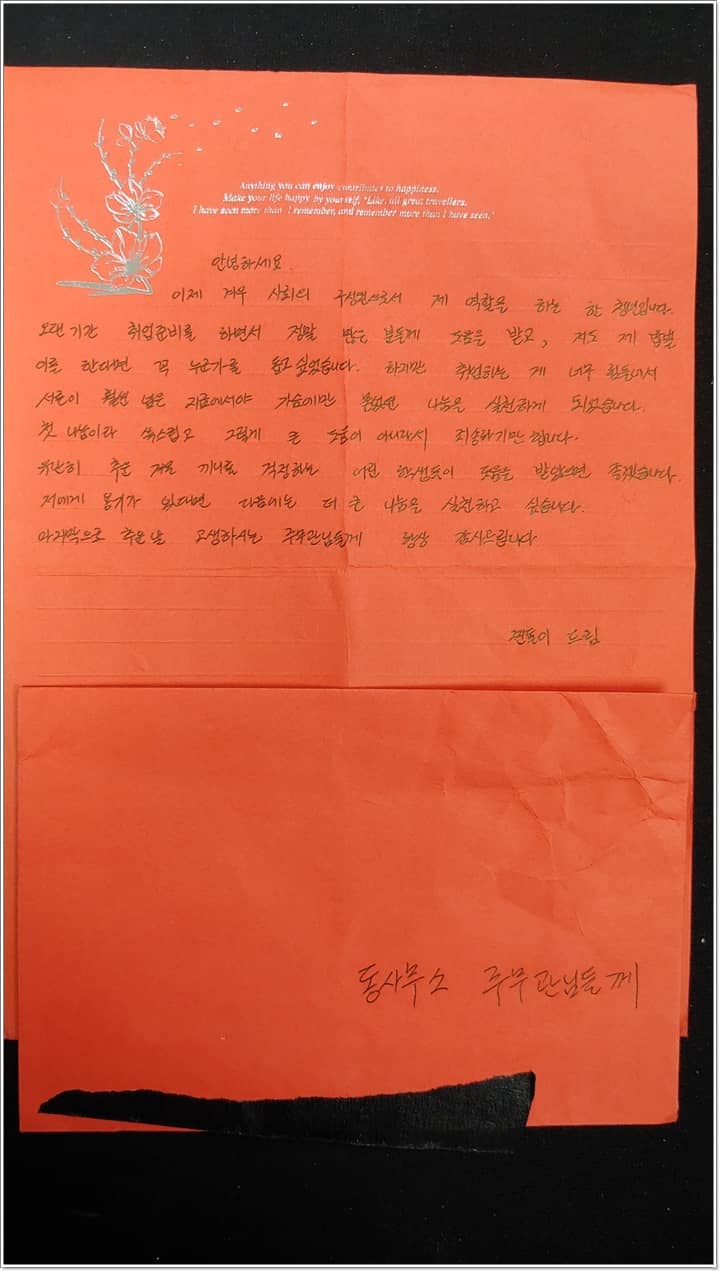 Anything you can enjoy contributes to happiness.
Make your life happy by yourself, "Like, all great travellers,
I have seen more than I remember, and remember more than I have seen."
안녕하세요.
이제 겨우 사회의 구성원으로서 제 역할을 하는 한 청년입니다.
오랜기간 취업준비를 하면서 정말 많은 분들께 도움을 받고, 저도 제 밥벌
이를 한다면 꼭 누군가를 돕고 싶었습니다. 하지만 취업하는 게 너무 힘들어서
서른이 훨씬 넘은 지금에서야 가슴에만 품었던 나눔을 실천하게 되었습니다.
첫 나눔이라 쑥스럽고 그렇게 큰 도움이 아니라서 죄송하기만 합니다.
유난히 추운 겨울 끼니를 걱정하는 어린 학생들이 도움을 받았으면 좋겠습니다.
저에게 용기가 있다면 다음에는 더 큰 나눔을 실천하고 싶습니다.
마지막으로 추운 날 고생하시는 주무관님들께 항상 감사드립니다
드림
동사무소 주무관님들께